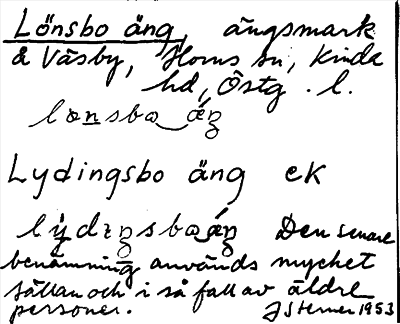 Lönsbo äng, ängsmark
å Väsby, Horns sn, Kinda
hd, Östg. l.
lønsbo_áŋ
Lydingsbo äng ek
lỳdɪŋsboáŋ Den senare
benämning används mycket
sällan och i så fall av äldre
personer. J Sterner 1953